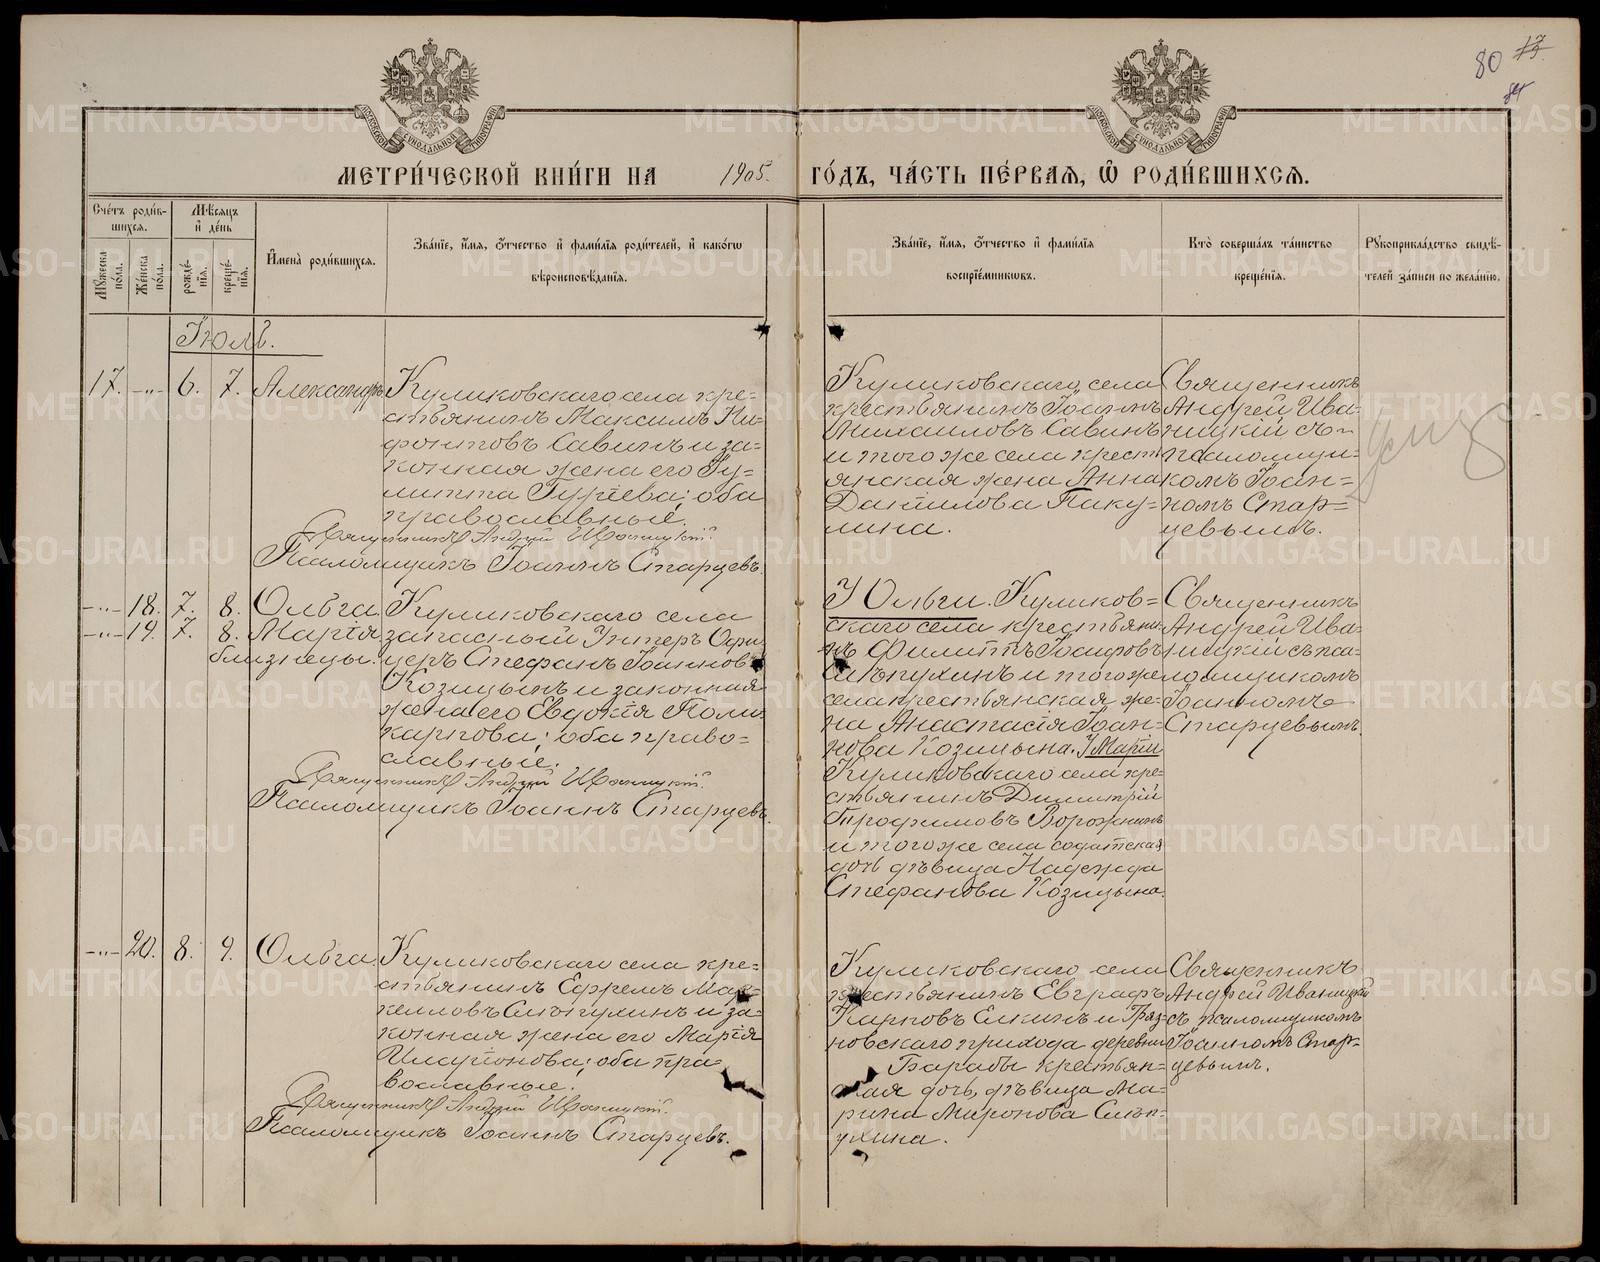 80 17.
МЕТРИ́ЧЕСКОЙ КНИ́ГИ НА 1905. ГО́ДЪ, ЧА́СТЬ ПЕ́РВАѦ, Ѽ РОДИ́ВШИХСѦ.
Сче́тъ роди́вшихсѧ.
Мꙋжеска по́ла.
Же́нска по́ла.
Мѣ́сѧцъ и҆ де́нь
рожде́нїѧ.
креще́нїѧ.
И҆мена̀ роди́вшихсѧ.
Зва́нїе, и҆́мѧ, ѻ҆́тчество и҆ фами́лїѧ роди́телей, и҆ како́гѡ
вѣроисповѣ́данїѧ.
Зва́нїе, и҆́мѧ, ѻ҆́тчество и҆ фами́лїѧ
воспрїе́мникѡвъ.
Кто̀ соверша́лъ та́инство
креще́нїѧ.
Рꙋкоприкла́дство свидѣ́-
телей за́писи по жела́нїю.
Іюль.
17. -„- 6. 7. Александръ
Куликовскаго села кре=
стьянинъ Максимъ Ни=
фонтовъ Савинъ и за=
конная жена его Іу=
литта Гуріева; оба
православные.
Священникъ Андрей Иваницкій.
Псаломщикъ Іоаннъ Старцевъ.
Куликовскаго села
крестьянинъ Іоаннъ
Михаиловъ Савинъ
и того же села крестьянская жена Анна
Даніилова Паку=
лина.
Священникъ
Андрей Ива=
ницкій съ
псаломщи=
комъ Іоан=
номъ Стар=
цевымъ.
-„- 18. 7. 8. Ольга
-„- 19. 7. 8. Марія
близнецы.
Куликовскаго села
запасный Унтеръ Офи=
церъ Стефанъ Іоанновъ
Козицынъ и законная
жена его Евдокія Поли=
карпова; оба право=
славные.
Священникъ Андрей Иваницкій.
Псаломщикъ Іоаннъ Старцевъ.
У Ольги. Куликов=
скаго села крестьяни=
нъ Филиппъ Іосифовъ
Слѣпухинъ и того же
села крестьянская же=
на Анастасія Іоан=
нова Козицына. У Маріи
Куликовскаго села кре=
стьянинъ Димитрій
Трофимовъ Ворожнинъ
и того же села солдатская
дочь дѣвица Надежда
Стефанова Козицына.
Священникъ
Андрей Ива=
ницкій съ пса=
ломщикомъ
Іоанномъ
Старцевымъ.
-„- 20. 8. 9. Ольга.
Куликовскаго села кре=
стьянинъ Ефремъ Мар=
келловъ Снѣгулинъ и за=
конная жена его Марія
Иларіонова; оба пра=
вославные.
Священникъ Андрей Иваницкій.
Псаломщикъ Іоаннъ Старцевъ.
Куликовскаго села
крестьянинъ Евграфъ
Карповъ Елкинъ и Гряз=
новскаго прихода деревни
Барабы крестьян=
ская дочь, дѣвица Ма=
рина Миронова Слѣп=
ухина.
Священникъ
Андрей Иваницкій
съ псаломщикомъ
Іоанномъ Стар=
цевымъ.